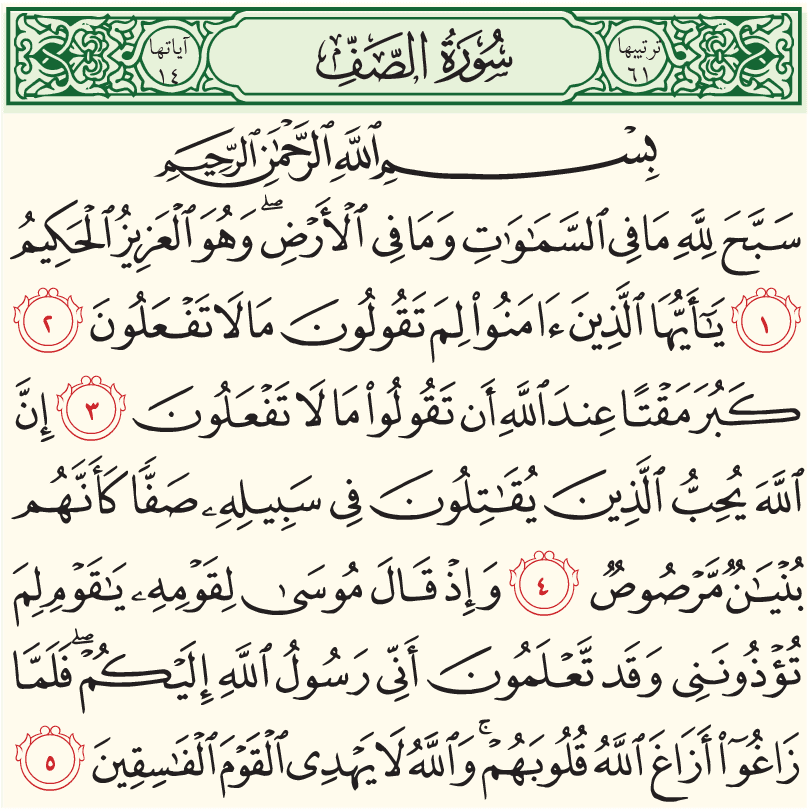 ترتيبها ٦١ سُورَةُ الصَّفِّ آياتها ١٤
بِسْمِ ٱللَّهِ ٱلرَّحْمَٰنِ ٱلرَّحِيمِ
سَبَّحَ لِلَّهِ مَا فِي ٱلسَّمَٰوَٰتِ وَمَا فِي ٱلْأَرْضِ ۖ وَهُوَ ٱلْعَزِيزُ ٱلْحَكِيمُ
١ يَٰٓأَيُّهَا ٱلَّذِينَ ءَامَنُوا۟ لِمَ تَقُولُونَ مَا لَا تَفْعَلُونَ ٢
كَبُرَ مَقْتًا عِندَ ٱللَّهِ أَن تَقُولُوا۟ مَا لَا تَفْعَلُونَ ٣ إِنَّ
ٱللَّهَ يُحِبُّ ٱلَّذِينَ يُقَٰتِلُونَ فِي سَبِيلِهِۦ صَفًّا كَأَنَّهُم
بُنْيَٰنٌ مَّرْصُوصٌ ٤ وَإِذْ قَالَ مُوسَىٰ لِقَوْمِهِۦ يَٰقَوْمِ لِمَ
تُؤْذُونَنِي وَقَد تَّعْلَمُونَ أَنِّي رَسُولُ ٱللَّهِ إِلَيْكُمْ ۖ فَلَمَّا
زَاغُوٓا۟ أَزَاغَ ٱللَّهُ قُلُوبَهُمْ ۚ وَٱللَّهُ لَا يَهْدِي ٱلْقَوْمَ ٱلْفَٰسِقِينَ ٥